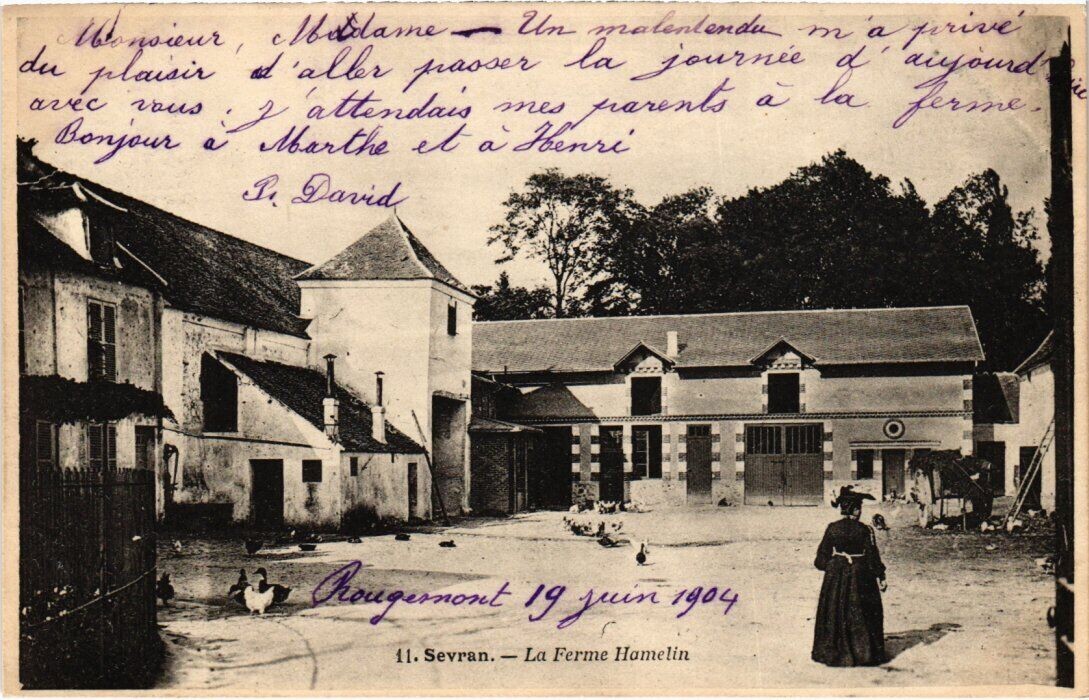 Monsieur, Madame — Un malentendu m'a privé
du plaisir d'aller passer la journée d'aujourd'hui
avec vous. J'attendais mes parents à la ferme.
Bonjour à Marthe et à Henri
Pr. David
Rougemont 19 juin 1904
11. Sevran. — La Ferme Hamelin